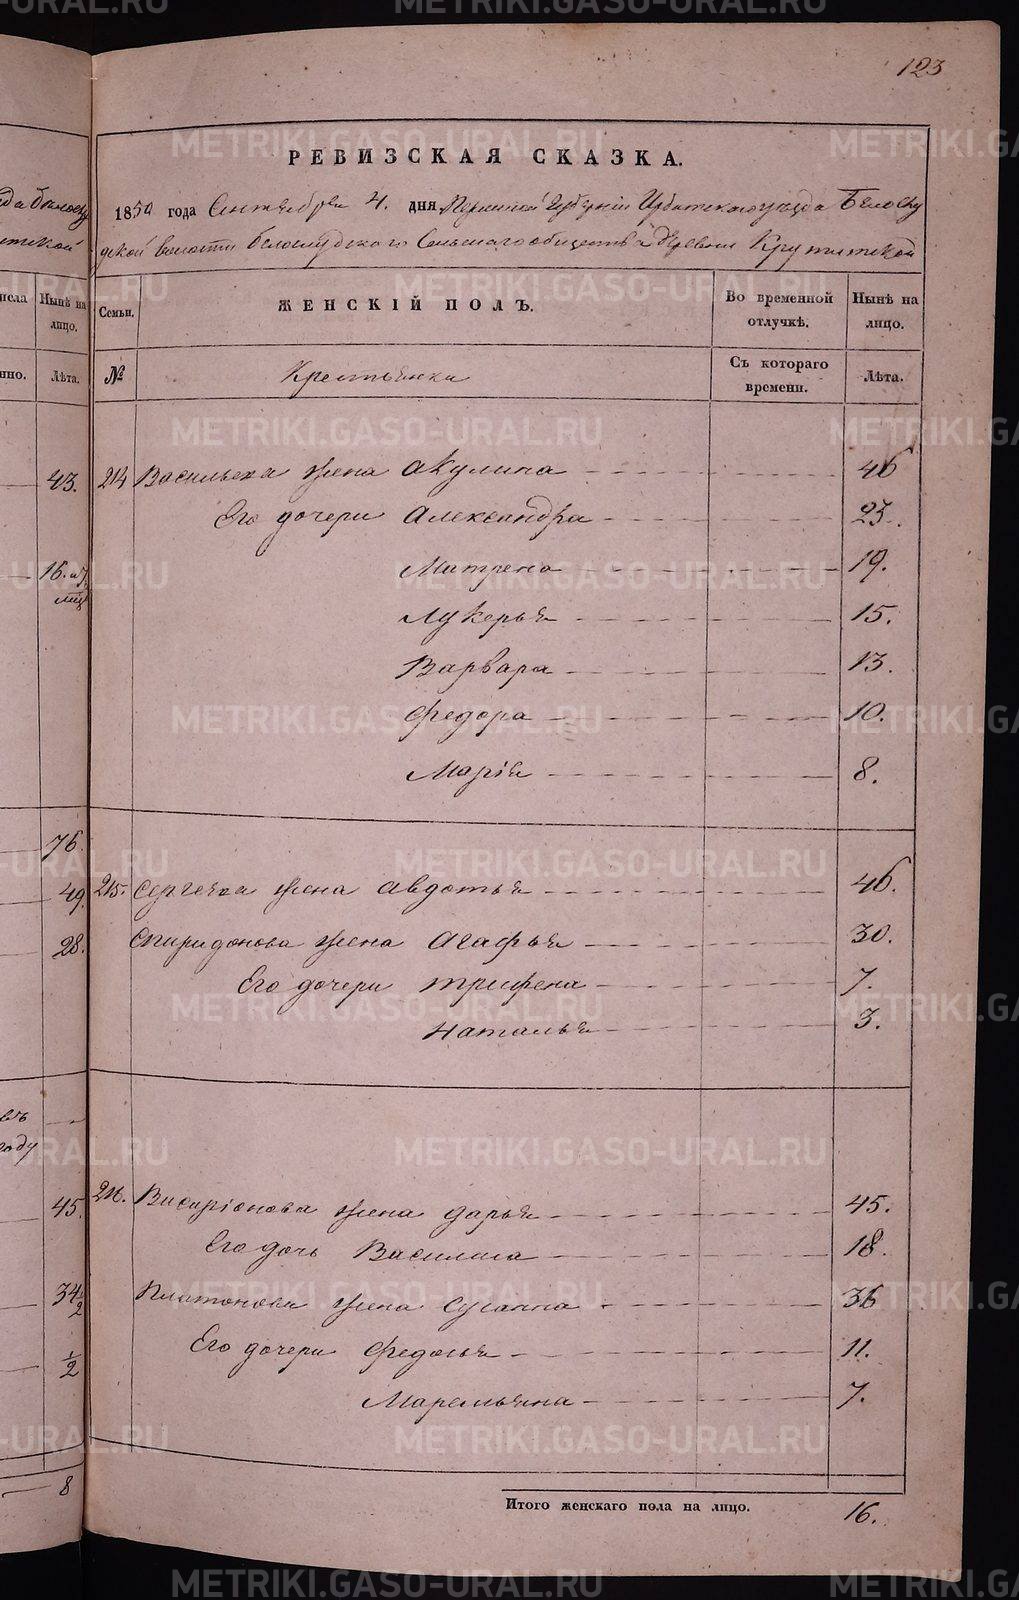 123
РЕВИЗСКАЯ СКАЗКА.
1850 года Сентября 4. дня. Пермской Губерніи Ирбитского уезда Белослу
дской волости Белослудского Сельского общества деревни Крутихской
Семьи.
ЖЕНСКІЙ ПОЛЪ.
Во временной отлучкѣ.
Нынѣ на лицо.
№
Крестьянка
Съ котораго времени.
Лѣта.
214 Васильева жена Акулина 46
Его дочери Александра 23.
Матрена 19.
Лукерья 15.
Варвара 13.
Федора 10.
Марія 8.
215. Сергеева жена Авдотья 46.
Спиридонова жена Агафья 30.
Его дочери Трифена 7.
Наталья 3.
216. Висаріонова жена Дарья 45.
Его дочь Василиса 18.
Платонова жена Сусанна 36
Его дочери Федосья 11.
Маремьяна 7.
Итого женскаго пола на лицо. 16.
Нынѣ на лицо.
Лѣта.
43.
16. и 7.
76.
49.
28.
году
45.
34 1/2
1/2
8
METRIKI.GASO-URAL.RU